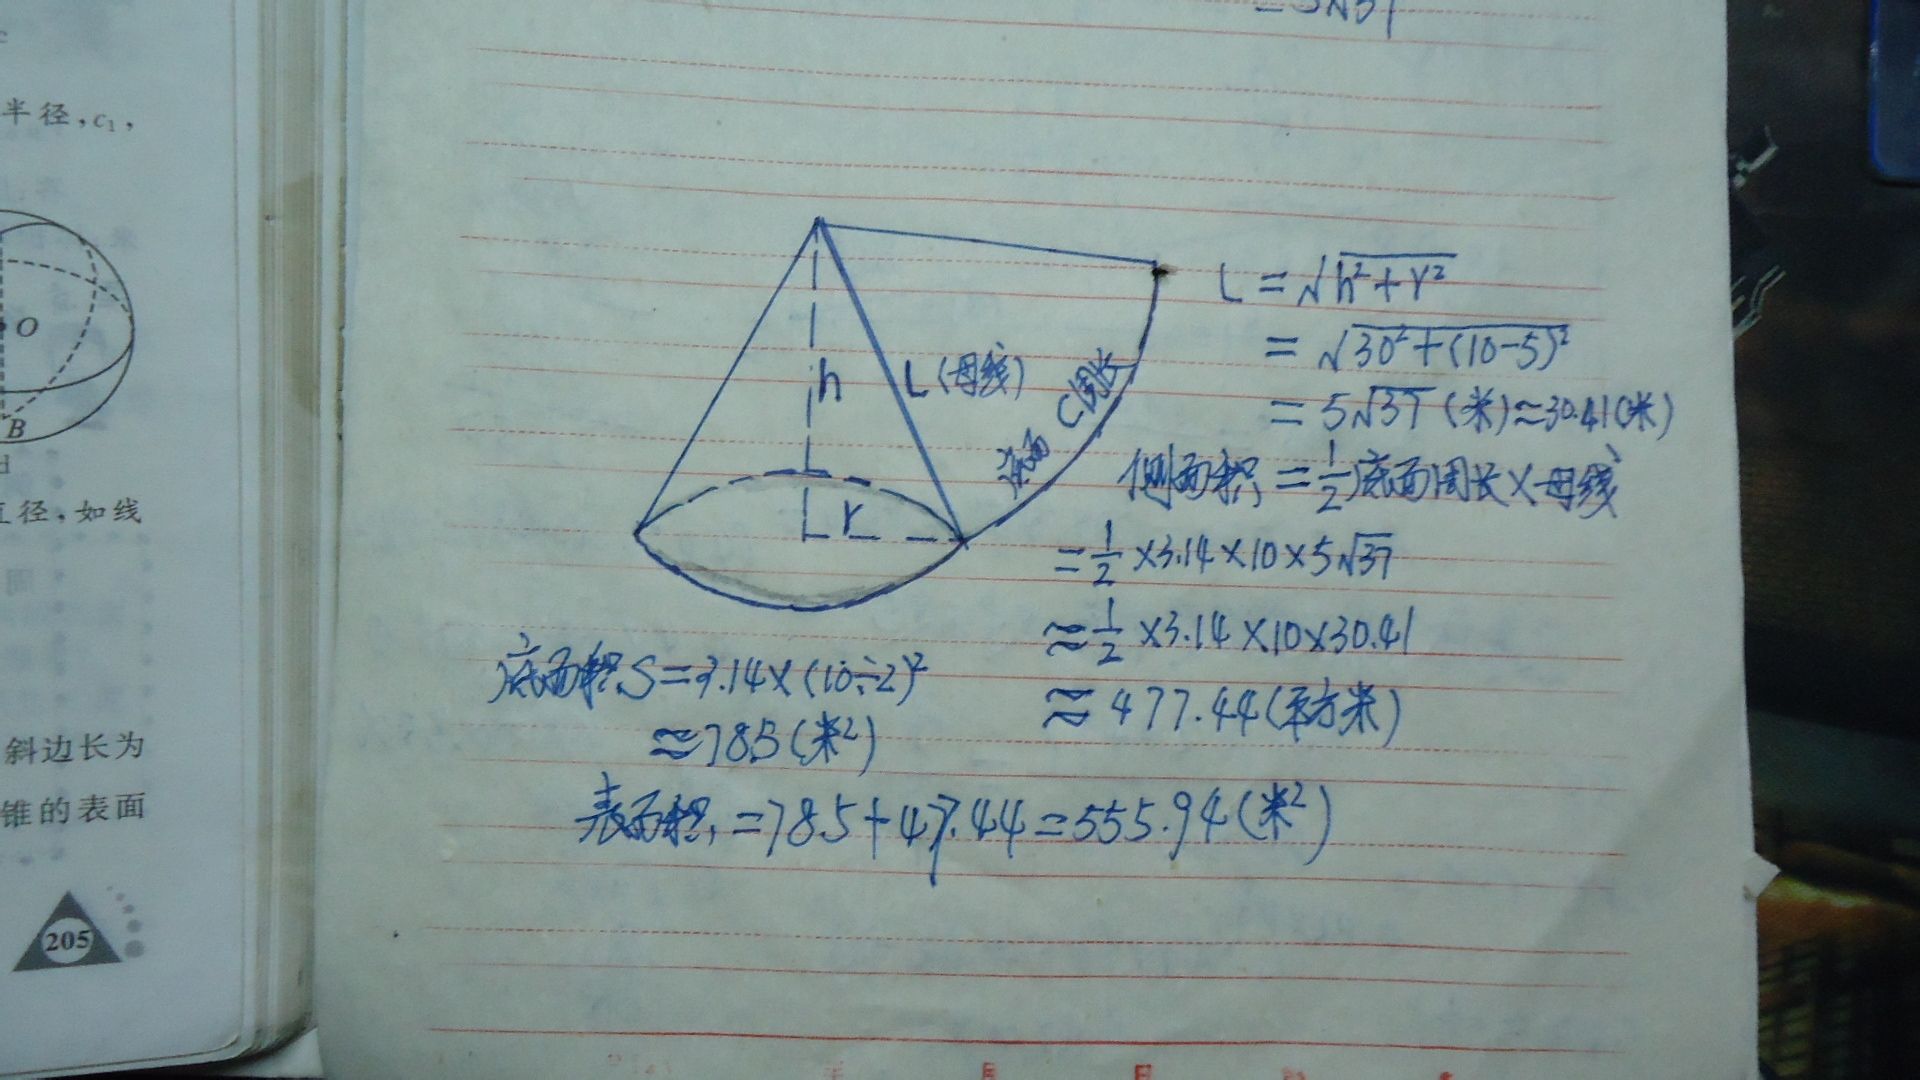 半径，c₁，
O
B
d
直径，如线
斜边长为
锥的表面
205
h
L(母线)
底面 C周长
r
L = √h²+r²
= √30²+(10-5)²
= 5√37 (米)≈30.41(米)
侧面积 = 1/2底面周长×母线
= 1/2 ×3.14×10×5√37
≈ 1/2 ×3.14×10×30.41
≈ 477.44(平方米)
底面积S=3.14×(10÷2)²
≈78.5(米²)
表面积 =78.5+477.44=555.94(米²)
年 月 日